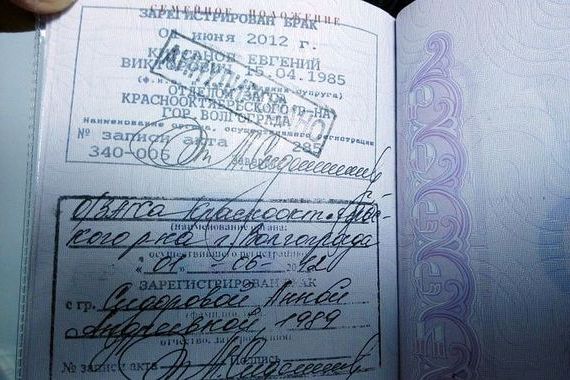 СЕМЕЙНОЕ ПОЛОЖЕНИЕ
ЗАРЕГИСТРИРОВАН БРАК
01 июня 2012 г.
ЕВГЕНИЙ
ВИКТОРОВИЧ 15.04.1985
ОТДЕЛОМ ЗАГСА
КРАСНООКТЯБРЬСКОГО Р-НА
ГОР. ВОЛГОГРАДА
Наименование органа, осуществившего регистрацию
№ записи акта 285
340-006 Заверил
О/ЗАГСа Краснооктябрь-
ского р-на г. Волгограда
(наименование органа,
осуществившего регистрацию)
"01" - 06 - 2012
ЗАРЕГИСТРИРОВАН БРАК
с гр. Сидоровой Анной
Андреевной, 1989
отчество, дата рождения)
№ записи акта Подпись